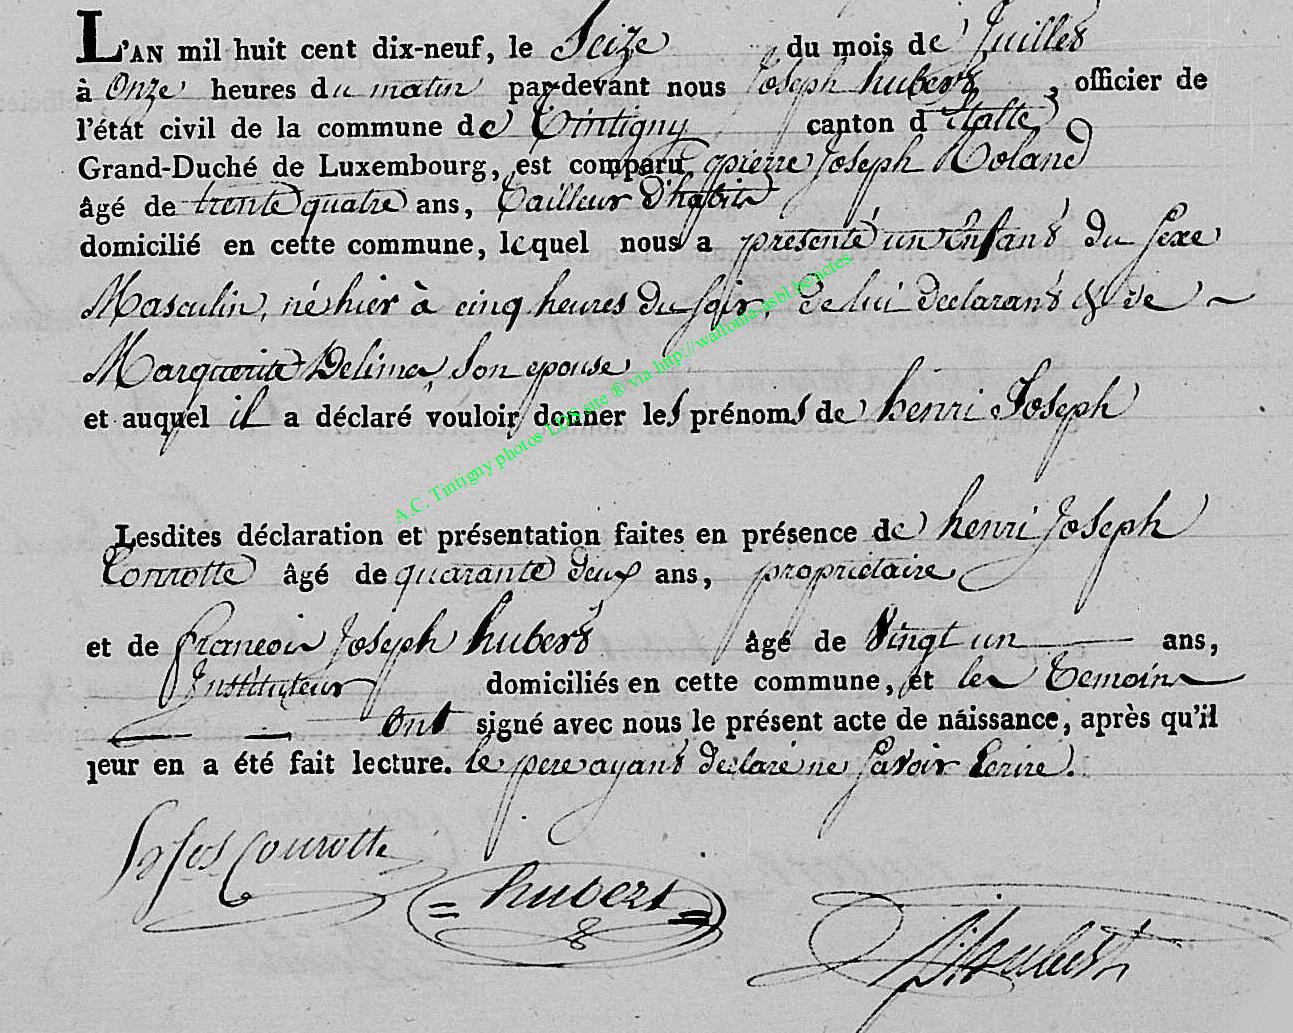 L'AN mil huit cent dix-neuf, le Seize du mois de Juillet
à Onze heures du matin pardevant nous Joseph hubert, officier de
l'état civil de la commune de Tintigny canton d'Etalle
Grand-Duché de Luxembourg, est comparu pierre Joseph Roland
âgé de trente quatre ans, Tailleur d'habits
domicilié en cette commune, lequel nous a presenté un Enfant du sexe
Masculin, né hier à cinq heures du soir, de lui declarant & de
Marguerite Delime, Son epouse
et auquel il a déclaré vouloir donner les prénoms de henri Joseph
Lesdites déclaration et présentation faites en présence de henri Joseph
Connotte âgé de quarante deux ans, propriétaire
et de francois Joseph hubert âgé de Vingt un ans,
Instituteur domiciliés en cette commune, et les Temoins
ont signé avec nous le présent acte de naissance, après qu'il
leur en a été fait lecture. le pere ayant declaré ne savoir Ecrire.
hubert
A.C. Tintigny photos LDS site ® via http://wallonia-asbl.be/actes